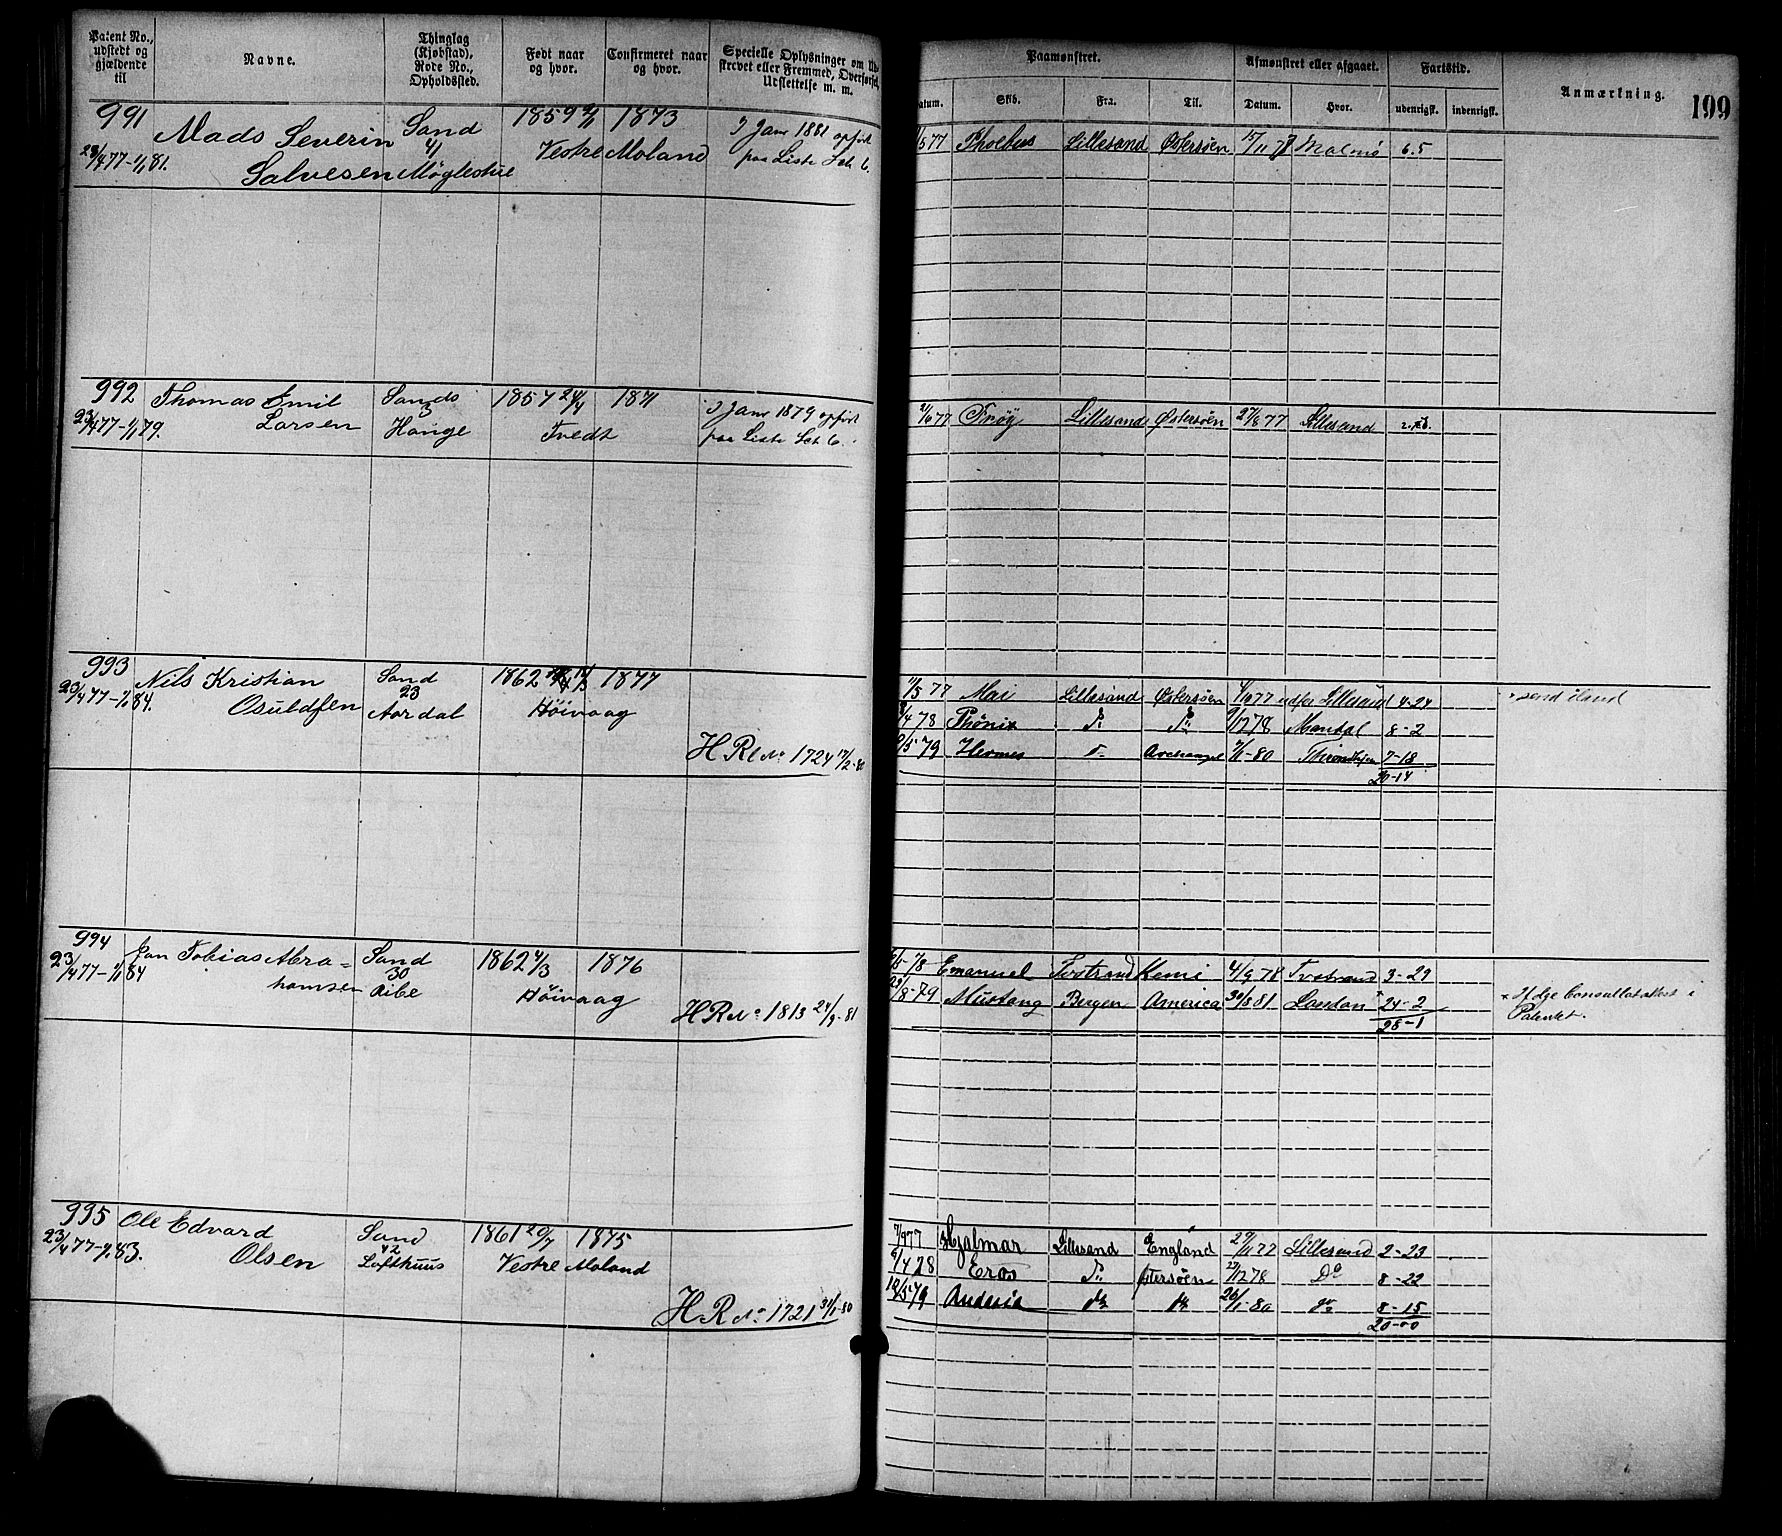 Patent No., udstedt og gjældende til
Navne.
Thinglag (Kjøbstad), Rode No., Opholdssted.
Født naar og hvor.
Confirmeret naar og hvor.
Specielle Oplysninger om Ud-
skrevet eller Fremmed, Overførsel,
Udslettelse m. m.
Paamønstret.
Afmønstret eller afgaaet.
Fartstid.
Anmærkning.
199
Datum. Skib. Fra. Til. Datum. Hvor. udenrigsk. indenrigsk.
991 Mads Severin Sand 1859 1873 3 Jan 1881 opført
23/4 77-1/1 81. Salvesen 41 Møglestue Vestre Moland paa Liste Sct 6.
77 Phoebus Lillesand Østersøen 15/11 Malmø 6.5
992 Thomas Emil Sands 1857 24/4 1871 3 Jan 1879 opført
23/4 77-1/1 79. Larsen 3 Hauge Tvedt paa Liste Sct 6.
77 Frøy Lillesand Østersøen 27/8 77 Lillesand
993 Nils Kristian Sand 1862 1877
23/4 77-1/1 84. Osuldsen 23 Aardal Höivaag
H R No 1724 17/2-80
/5 77 Mai Lillesand Østersøen 77 Lillesand 4-24
/4 78 Phönix Do Do /12 78 Mandal 8-2
/5 79 Hermes Do Archangel 80 7-18
20-14
994 Jan Tobias Abra- Sand 1862 4/3 1876
23/4 77-1/1 84 hamsen 30 Ribe Höivaag
H R No 1813 24/9-81
78 Emanuel Tvestrand Kemi 4/9 78 Tvestrand 3-29
29/8-79 Mustang Bergen America 30/8 81 London * 24-2
28-1
* Ifølge Consulatattest i
Patentet.
995 Ole Edvard Sand 1861 20/7 1875
23/4 77-1/1 83. Olsen 42 Lofthuus Vestre Moland
H R No 1721 31/1-80
7/9 77 Hjalmar Lillesand England 29/11 77 Lillesand 2-23
/4 78 Eros Do Østersøen /12 78 Do 8-22
10/5 79 do do 26/1-80 do 8-15
20-00